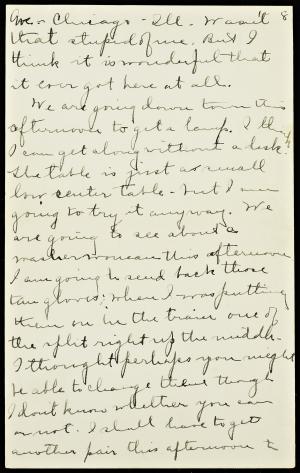 Ave - Chicago - Ill. Wasn't 8
that stupid of me. But I
think it is wonderful that
it ever got here at all.
We are going down town this
afternoon to get a lamp. I think
I can get along without a desk.
The table is just a small
low center table - but I am
going to try it anyway. We
are going to see about a
washerwoman this afternoon
I am going to send back those
tan gloves; when I was putting
them on in the train one of
the split right up the middle.
I thought perhaps you might
be able to change them though
I don't know whether you can
or not. I shall have to get
another pair this afternoon &